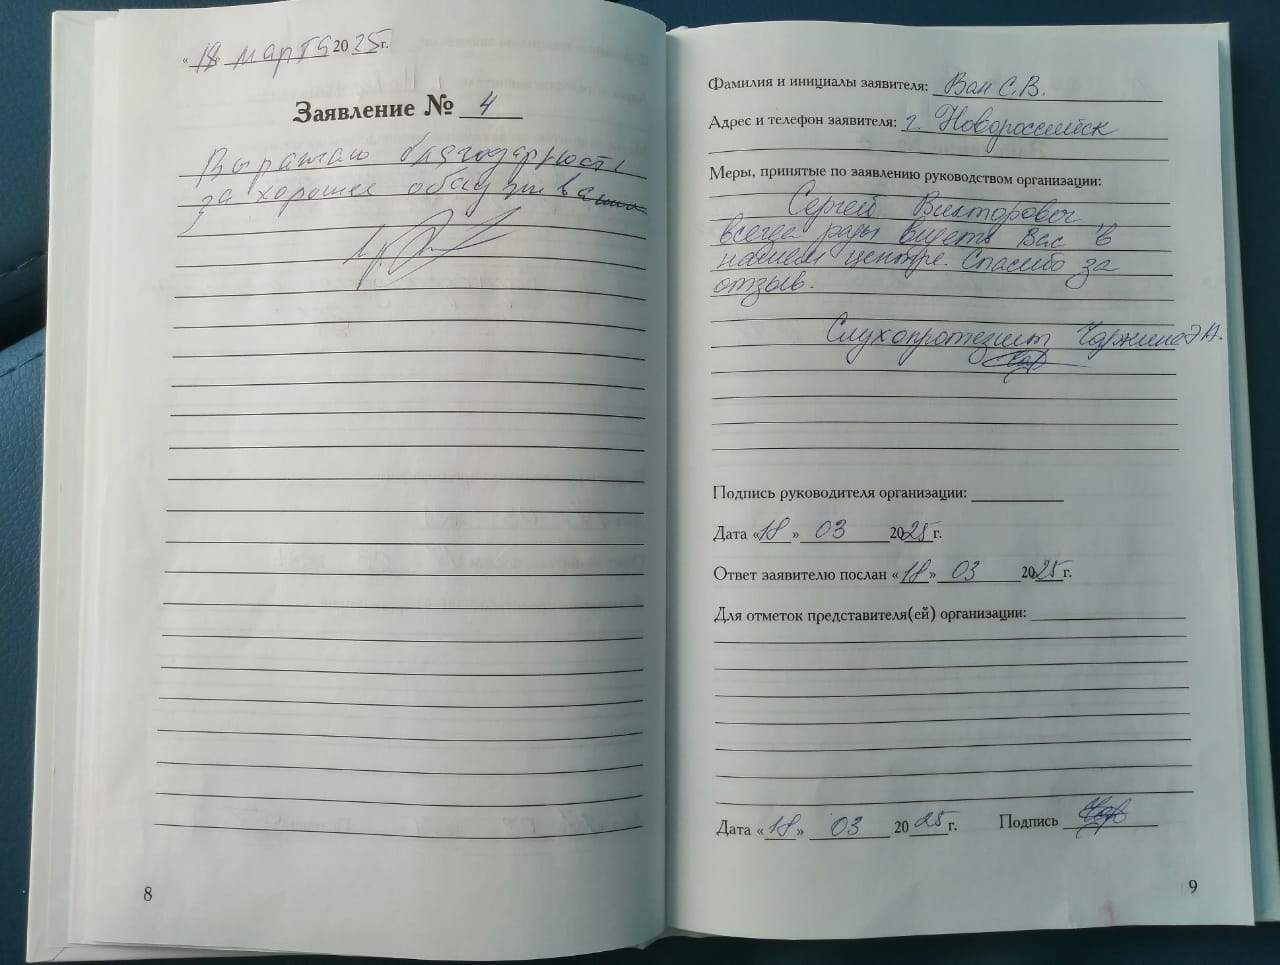 «18» марта 2025г.
Заявление № 4
Выражаю благодарность
за хорошее обслужива
8
Фамилия и инициалы заявителя: Ван С.В.
Адрес и телефон заявителя: г. Новороссийск
Меры, принятые по заявлению руководством организации:
Сергей Викторович
всегда рады видеть Вас в
нашем центре. Спасибо за
отзыв.
Слухопротезист
Подпись руководителя организации:
Дата «18» 03 2025г.
Ответ заявителю послан «18» 03 2025г.
Для отметок представителя(ей) организации:
Дата «18» 03 2025г. Подпись
9